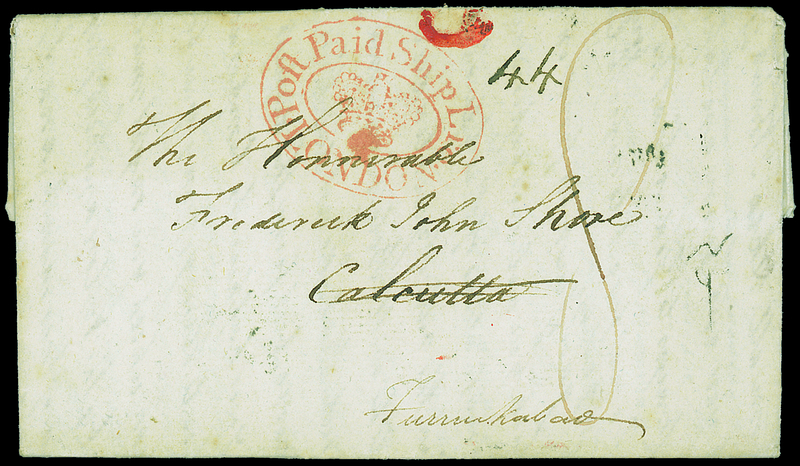 Post Paid Ship Lr
LONDON
44
The Honnerable
Frederick John Shore
Calcutta
Furruckabad